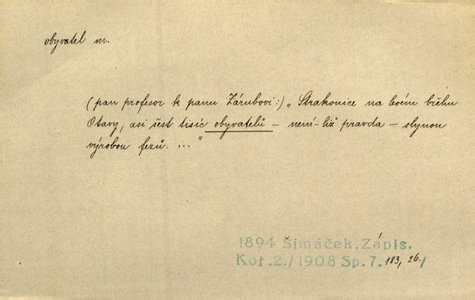 obyvatel m.
(pan profesor k panu Zárubovi:) „Strakonice na levém břehu
Otavy, asi šest tisíc obyvatelů – není-liž pravda – slynou
výrobou fezů. ..."
1894 Šimáček. Zápis.
Kot.2./1908 Sp.7. 183, 26./